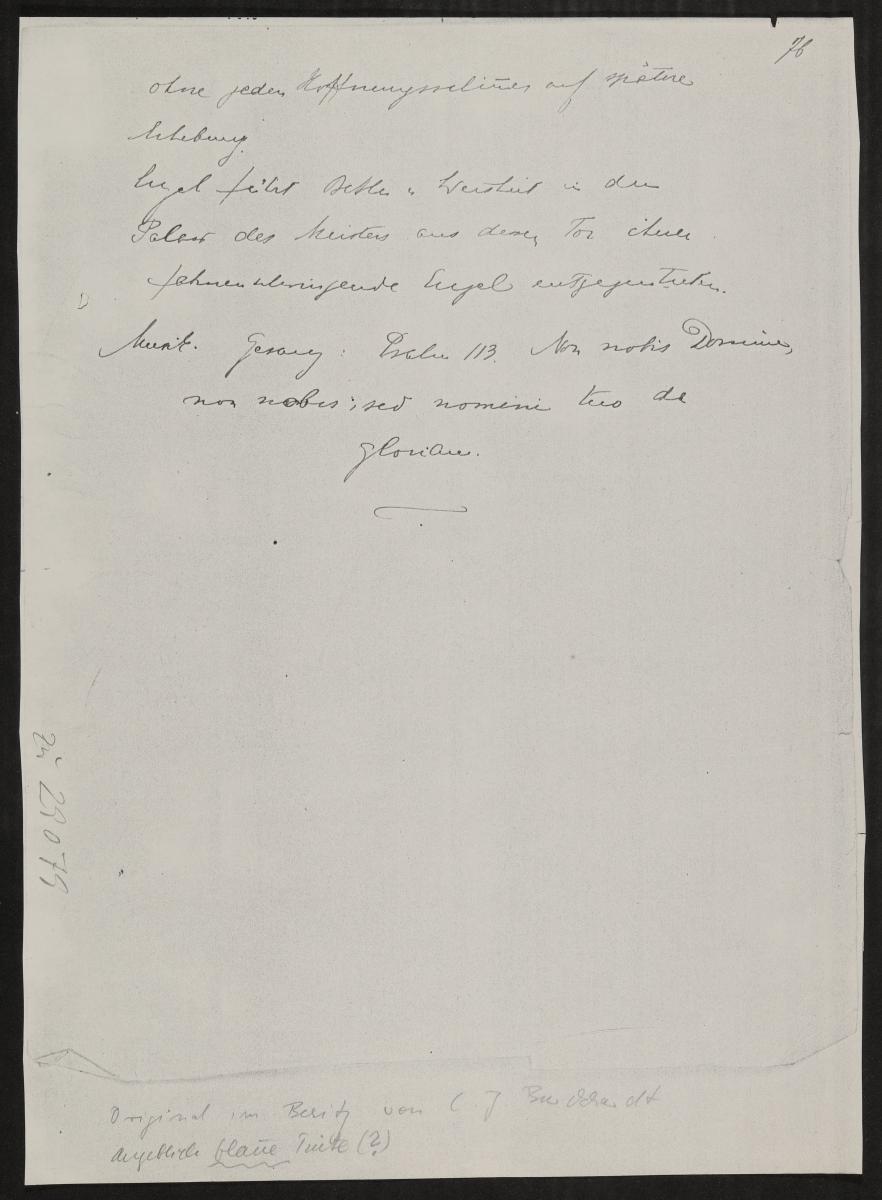 76
ohne jeden Hoffnungsschimer auf spätere
Erhebung.
Engel führt Bettler u Weisheit in den
Palast des Meisters aus dessen Tor ihnen
fahnenschwingende Engel entgegentreten.
Musik. Gesang: Psalm 113. Non nobis Domine,
non nobis; sed nomini tuo da
gloriam.
zu 29079
Original im Besitz von C J Burckhardt
Angeblich blaue Tinte (?)